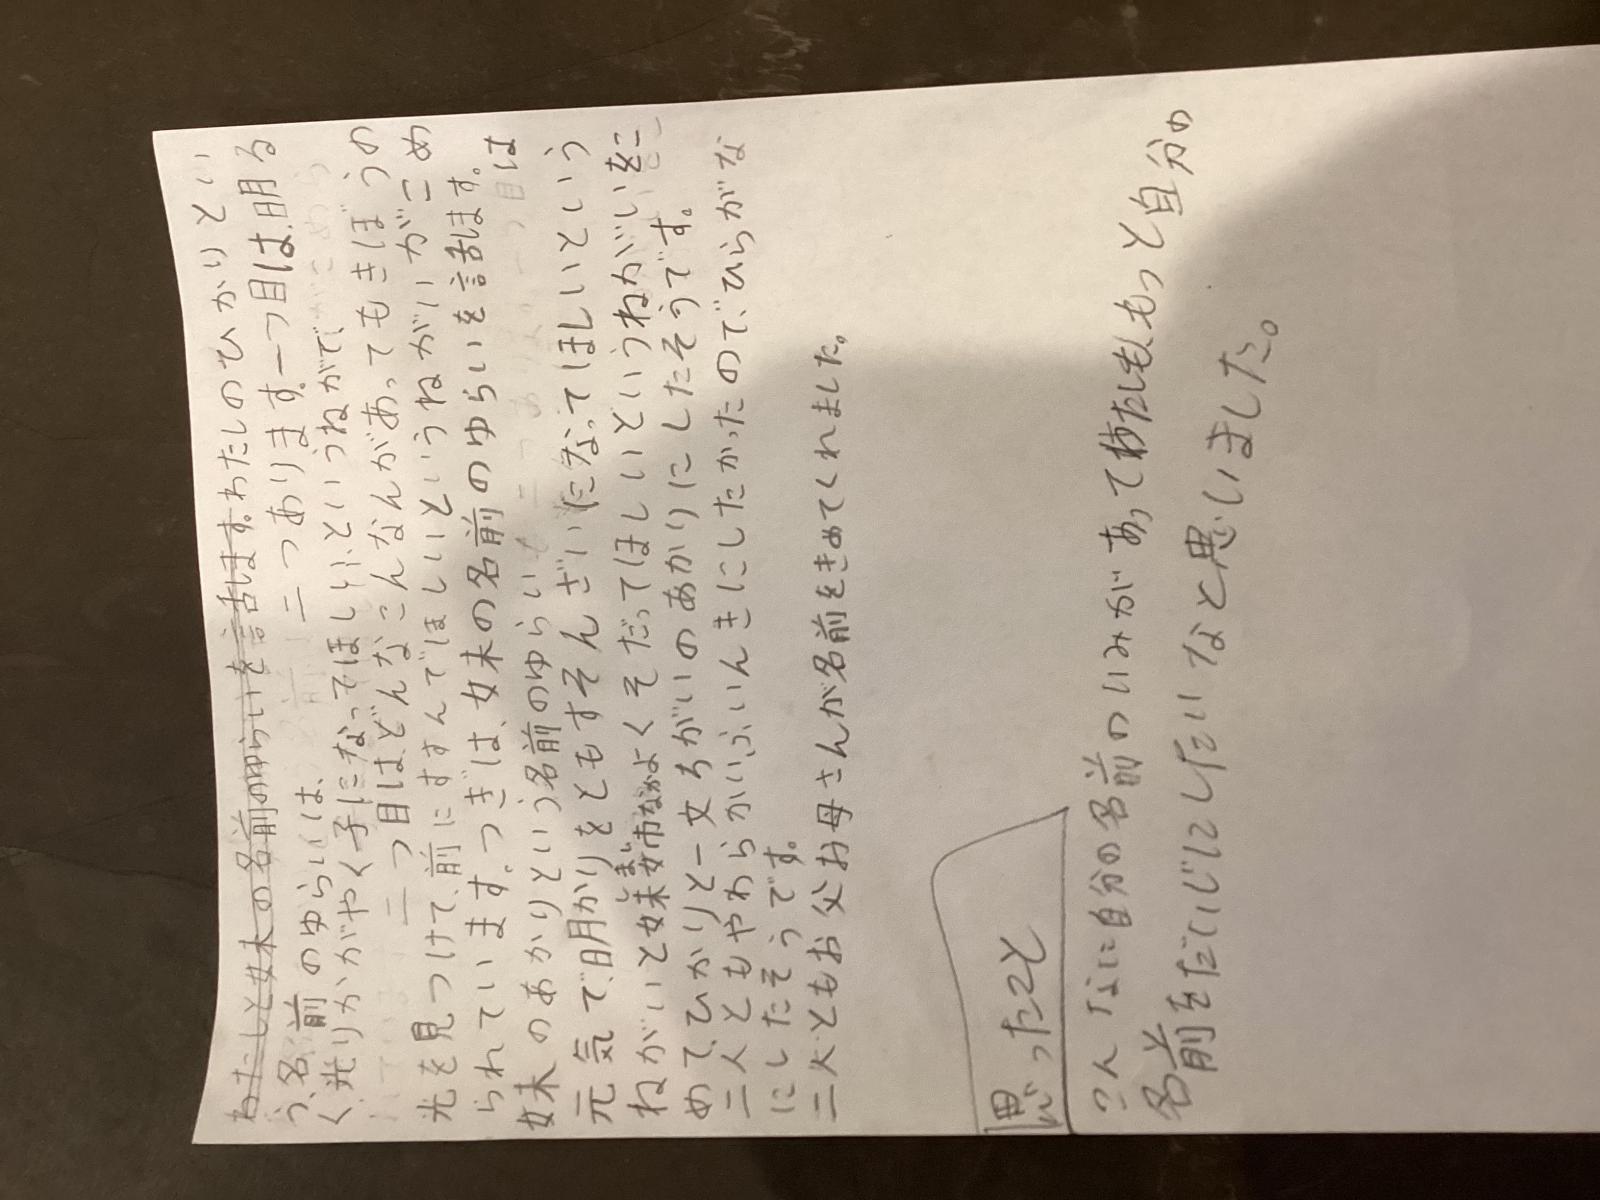 わたしと妹の名前のゆらいを話します。わたしのひかりとい
う、名前のゆらいは、二つあります。一つ目は、明る
く光りかがやく子になってほしい、というねがで
二つ目は、どんなこんなんがあってもきぼうの
光を見つけて、前にすすんでほしいというねがいがこめ
られています。つぎは、妹の名前のゆらいを話します。
妹のあかりという名前のゆらい は
元気で、明かりをともすそんざいになってほしいという
ねがいと姉妹なかよくそだってほしいというねがいをこ
しまい
めて、ひかりと一文ちがいのあかりにしたそうです。
二人ともやわらかいふいんきにしたかったので、ひらがな
にしたそうです。
二人ともお父お母さんが名前をきめてくれました。
思ったこと
こんなに自分の名前のいみがあってわたしも、もっと自分の
名前をだいじにしたいなと思いました。